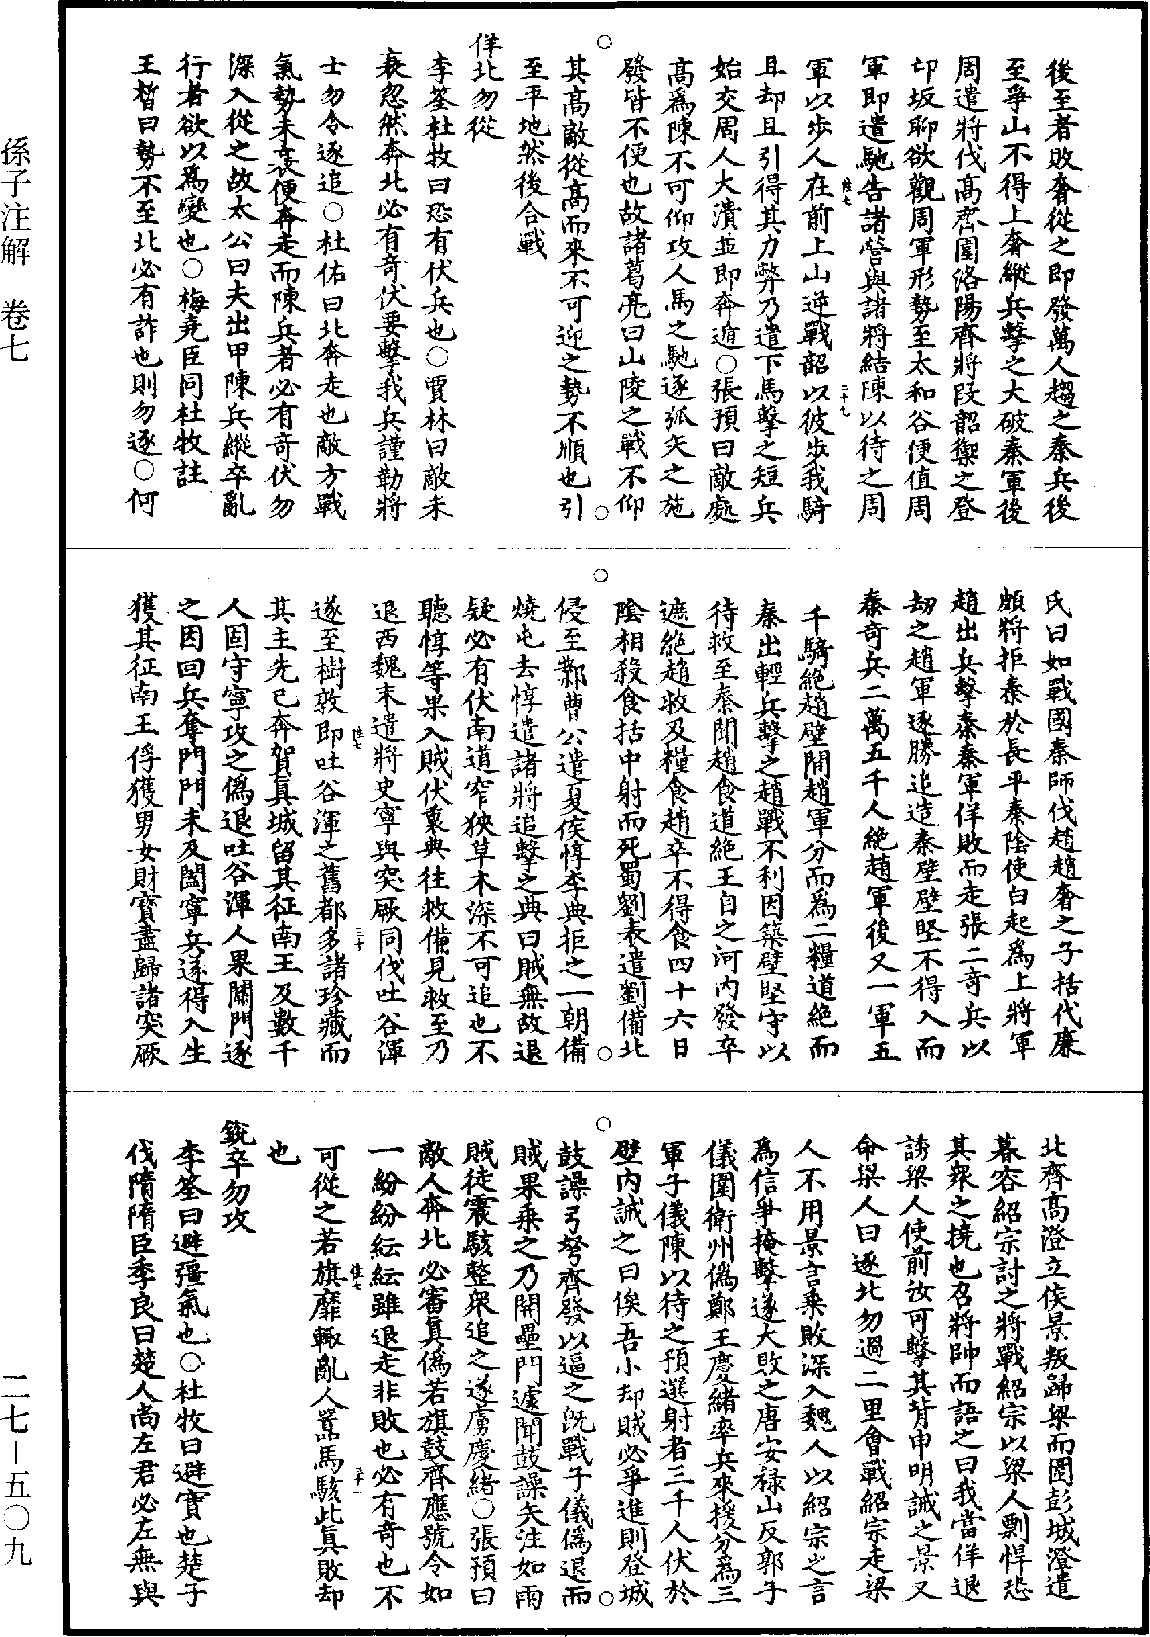 後至者敗奢從之即發萬人趨之秦兵後
至爭山不得上奢縱兵擊之大破秦軍後
周遣將伐高齊圍洛陽齊將段韶禦之登
邙坂聊欲觀周軍形勢至太和谷便值周
軍即遣馳告諸營與諸將結陳以待之周
軍以步人在前上山逆戰韶以彼步我騎
且却且引得其力弊乃遣下馬擊之短兵
始交周人大潰並即奔遁○張預曰敵處
高爲陳不可仰攻人馬之馳逐弧矢之施
發皆不便也故諸葛亮曰山陵之戰不仰
其高敵從高而來不可迎之勢不順也引
至平地然後合戰
佯北勿從
李筌杜牧曰恐有伏兵也○賈林曰敵未
衰忽然奔北必有奇伏要擊我兵謹勒將
士勿令逐追○杜佑曰北奔走也敵方戰
氣勢未衰便奔走而陳兵者必有奇伏勿
深入從之故太公曰夫出甲陳兵縱卒亂
行者欲以爲變也○梅堯臣同杜牧註
王晳曰勢不至北必有詐也則勿逐○何
氏曰如戰國秦師伐趙趙奢之子括代廉
頗將拒秦於長平秦陰使白起爲上將軍
趙出兵擊秦秦軍佯敗而走張二奇兵以
刼之趙軍逐勝追造秦壁壁堅不得入而
秦奇兵二萬五千人絶趙軍後又一軍五
千騎絶趙壁間趙軍分而爲二糧道絶而
秦出輕兵擊之趙戰不利因築壁堅守以
待救至秦聞趙食道絶王自之河內發卒
遮絶趙救及糧食趙卒不得食四十六日
陰相殺食括中射而死蜀劉表遣劉備北
侵至鄴曹公遣夏侯惇李典拒之一朝備
燒屯去惇遣諸將追擊之典曰賊無故退
疑必有伏南道窄狹草木深不可追也不
聽惇等果入賊伏裏典往救備見救至乃
退西魏末遣將史寧與突厥同伐吐谷渾
遂至樹敦即吐谷渾之舊都多諸珍藏而
其主先已奔賀真城留其征南王及數千
人固守寧攻之僞退吐谷渾人果開門逐
之因回兵奪門門未及闔寧兵遂得入生
獲其征南王俘獲男女財寶盡歸諸突厥
北齊高澄立侯景叛歸梁而圍彭城澄遣
慕容紹宗討之將戰紹宗以梁人剽悍恐
其衆之撓也召將帥而語之曰我當佯退
誘梁人使前汝可擊其背申明誡之景又
命梁人曰逐北勿過二里會戰紹宗走梁
人不用景言乘敗深入魏人以紹宗之言
爲信爭掩擊遂大敗之唐安祿山反郭子
儀圍衛州僞鄭王慶緒率兵來援分爲三
軍子儀陳以待之預選射者三千人伏於
壁內誡之曰俟吾小却賊必爭進則登城
鼓譟弓弩齊發以逼之旣戰子儀僞退而
賊果乘之乃開壘門遽聞鼓譟矢注如雨
賊徒震駭整衆追之遂虜慶緒○張預曰
敵人奔北必審真僞若旗鼓齊應號令如
一紛紛紜紜雖退走非敗也必有奇也不
可從之若旗靡轍亂人囂馬駭此真敗却
也
銳卒勿攻
李筌曰避彊氣也○杜牧曰避實也楚子
伐隋隋臣季良曰楚人尚左君必左無與
孫子注解 卷七
二七－五〇九